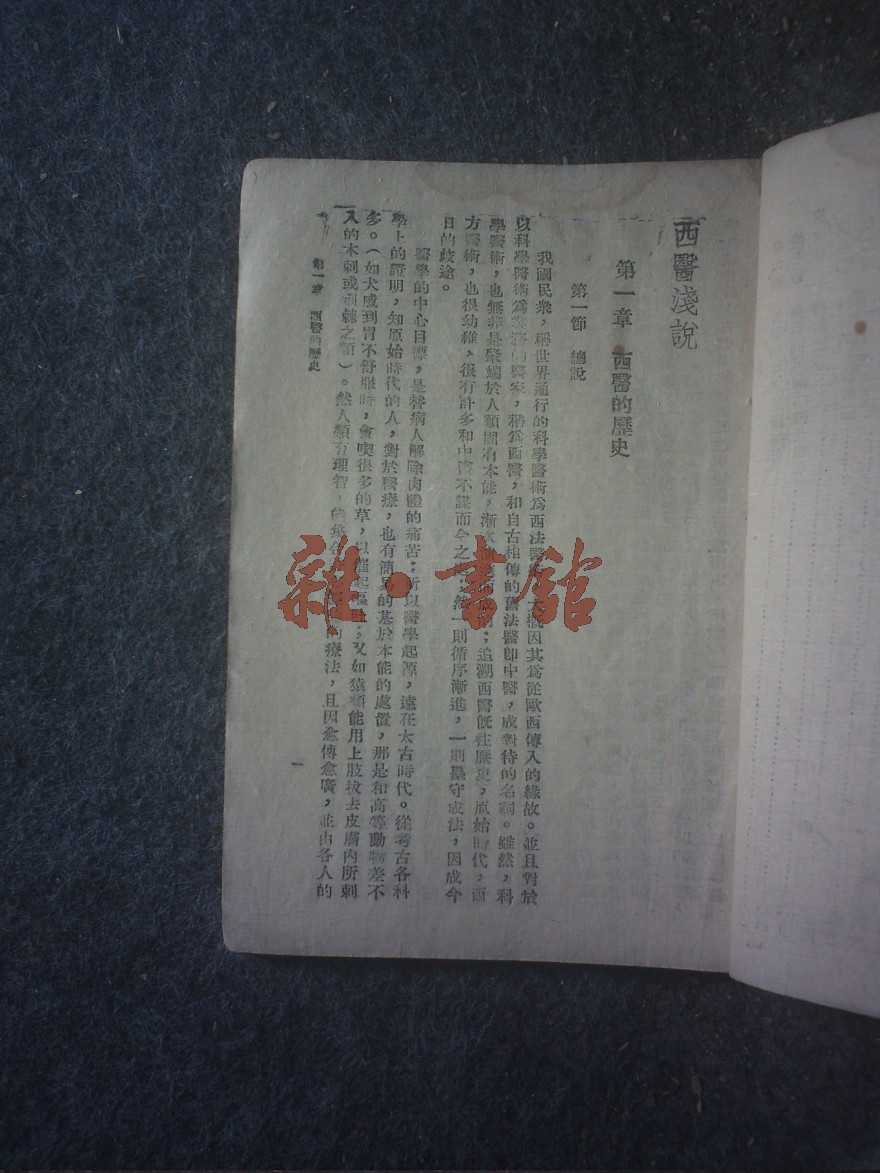 西醫淺說
第一章 西醫的歷史
第一節 總說
我國民衆，稱世界通行的科學醫術爲西法醫術，大概因其爲從歐西傳入的緣故。並且對於
以科學醫術爲業務的醫家，稱爲西醫，和自古相傳的舊法醫即中醫，成對待的名詞。雖然，科
學醫術，也無非是肇端於人類固有本能，漸次；追溯西醫既往歷史，原始時代，西
方醫術，也很幼稚，很有許多和中醫不謀而合之處；然一則循序漸進，一則墨守成法，因成今
日的歧途。
醫學的中心目標，是替病人解除肉體的痛苦；所以醫學起源，遠在太古時代。從考古各科
學上的證明，知原始時代的人，對於醫療，也有簡易的基於本能的處置，那是和高等動物差不
多。（如犬感到胃不舒服時，會喫很多的草，以催起嘔吐；又如猿類能用上肢拔去皮膚內所刺
入的木刺或荊棘之類）。然人類有理智，能集合的療法，且因愈傳愈廣，並由各人的
第一章 西醫的歷史
一
雜·書館